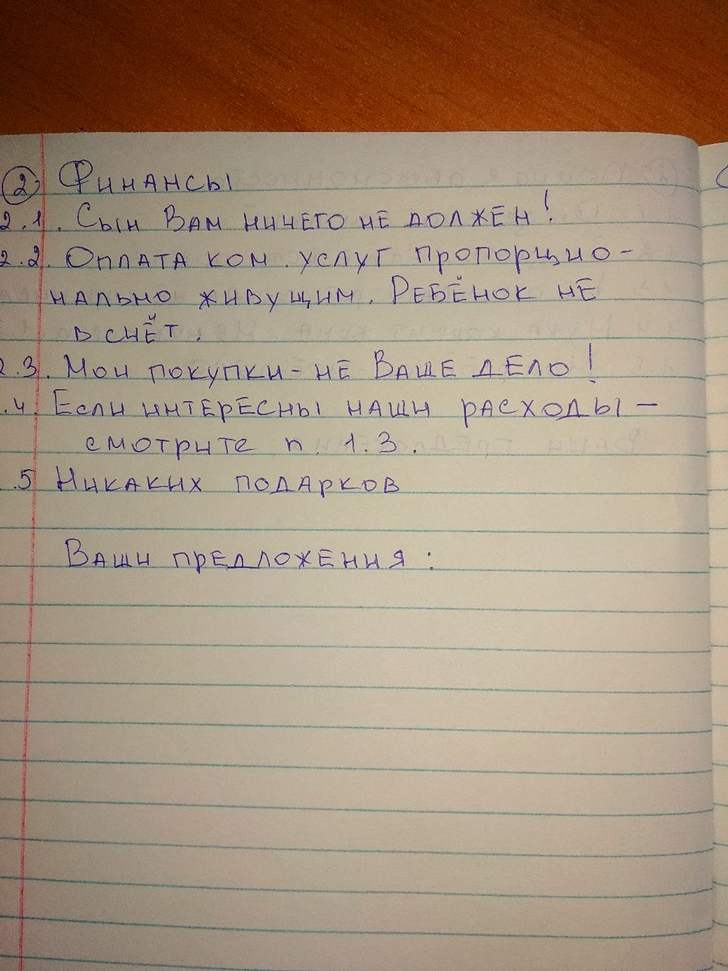 ② Финансы
2.1. Сын Вам ничего не должен!
2.2. Оплата ком. услуг пропорцио-
нально живущим. Ребёнок не
в счёт.
2.3. Мои покупки - не Ваше дело!
.4. Если интересны наши расходы -
смотрите п. 1.3.
.5 Никаких подарков
Ваши предложения: